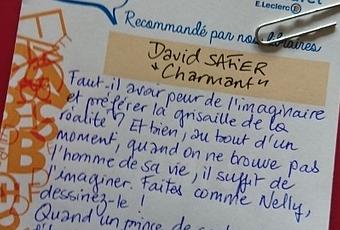 E.Leclerc
Recommandé par nos libraires
David SAFIER
"Charmant"
Faut-il avoir peur de l'imaginaire
et préférer la grisaille de la
réalité ? Et bien, au bout d'un
moment, quand on ne trouve pas
l'homme de sa vie, il suffit de
l'imaginer. Faites comme Nelly,
dessinez-le !
Quand un prince de